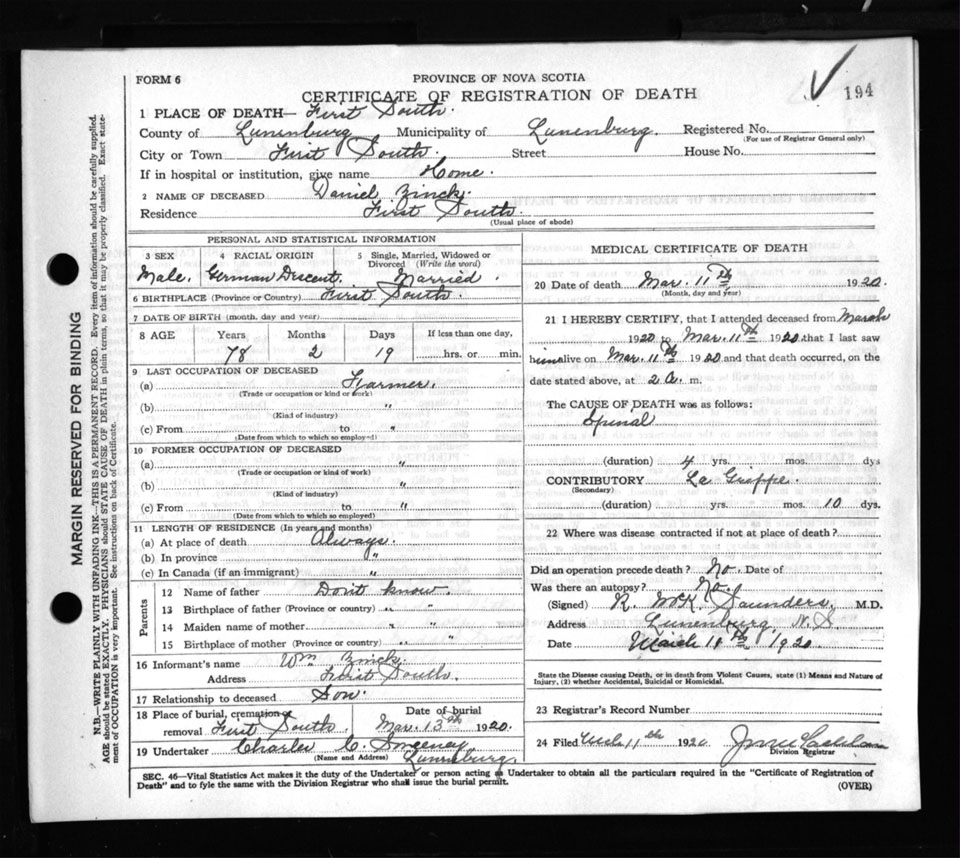 FORM 6
PROVINCE OF NOVA SCOTIA
CERTIFICATE OF REGISTRATION OF DEATH
194
1 PLACE OF DEATH— First South.
County of Lunenburg Municipality of Lunenburg. Registered No.
(For use of Registrar General only)
City or Town First South. Street House No.
If in hospital or institution, give name Home.
2 NAME OF DECEASED Daniel Zinck.
Residence First South.
(Usual place of abode)
PERSONAL AND STATISTICAL INFORMATION
3 SEX 4 RACIAL ORIGIN 5 Single, Married, Widowed or Divorced (Write the word)
Male. German Descent. Married.
6 BIRTHPLACE (Province or Country) First South.
7 DATE OF BIRTH (month, day and year)
8 AGE Years Months Days If less than one day,
78 2 19 hrs. or min.
9 LAST OCCUPATION OF DECEASED
(a) Farmer.
(Trade or occupation or kind of work)
(b) "
(Kind of industry)
(c) From to "
(Date from which to which so employed)
10 FORMER OCCUPATION OF DECEASED
(a) "
(Trade or occupation or kind of work)
(b) "
(Kind of industry)
(c) From to "
(Date from which to which so employed)
11 LENGTH OF RESIDENCE (In years and months)
(a) At place of death Always.
(b) In province "
(c) In Canada (if an immigrant) "
Parents
12 Name of father Don't know.
13 Birthplace of father (Province or country) " "
14 Maiden name of mother " "
15 Birthplace of mother (Province or country) " "
16 Informant's name Wm Zinck.
Address First South.
17 Relationship to deceased Son.
18 Place of burial, cremation or removal First South. Date of burial Mar. 13th 1920.
19 Undertaker Charles C. Sweeney
(Name and Address) Lunenburg.
MEDICAL CERTIFICATE OF DEATH
20 Date of death Mar. 11th 1920.
(Month, day and year)
21 I HEREBY CERTIFY, that I attended deceased from March
1920 to Mar. 11th 1920 that I last saw
him alive on Mar. 11th 1920 and that death occurred, on the
date stated above, at 2 a. m.
The CAUSE OF DEATH was as follows:
Spinal
(duration) 4 yrs. mos. dys
CONTRIBUTORY La Grippe.
(Secondary)
(duration) yrs. mos. 10 dys.
22 Where was disease contracted if not at place of death?
Did an operation precede death? No. Date of
Was there an autopsy? No
(Signed) R. McK. Saunders, M.D.
Address Lunenburg, N.S
Date March 11th 1920
State the Disease causing Death, or in death from Violent Causes, state (1) Means and Nature of
Injury, (2) whether Accidental, Suicidal or Homicidal.
23 Registrar's Record Number
24 Filed Mch 11th 1920
Division Registrar
SEC. 46—Vital Statistics Act makes it the duty of the Undertaker or person acting as Undertaker to obtain all the particulars required in the "Certificate of Registration of
Death" and to fyle the same with the Division Registrar who shall issue the burial permit.
(OVER)
MARGIN RESERVED FOR BINDING
N.B.—WRITE PLAINLY WITH UNFADING INK—THIS IS A PERMANENT RECORD. Every item of information should be carefully supplied.
AGE should be stated EXACTLY. PHYSICIANS should STATE CAUSE OF DEATH in plain terms, so that it may be properly classified. Exact state-
ment of OCCUPATION is very important. See instructions on back of Certificate.